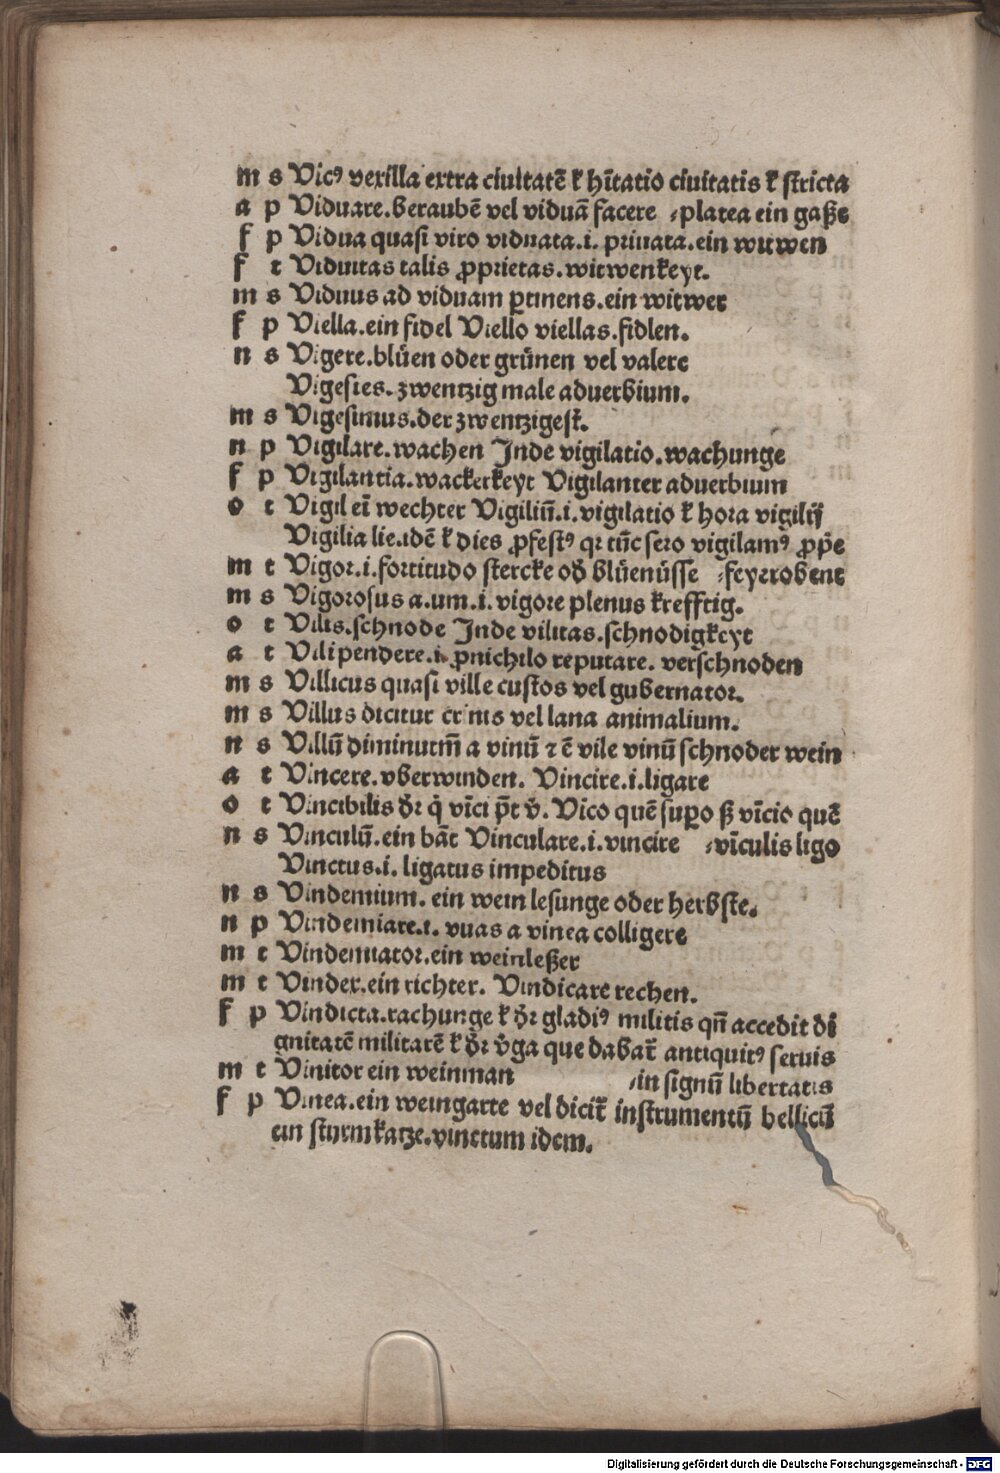 m s Vicꝰ vexilla extra ciuitatē ⁊ hītatio ciuitatis ⁊ stricta
a p Viduare.beraubē vel viduā facere ⸗platea ein gaße
f p Vidua quasi viro viduata.i. priuata.ein witwen
f t Viduitas talis ꝓprietas.witwenkeyt.
m s Viduus ad viduam ꝑtinens.ein witwer
f p Viella.ein fidel Viello viellas.fidlen.
n s Vigere.blüen oder grünen vel valere
Vigesies.zwentzig male aduerbium.
m s Vigesimus.der zwentzigest.
n p Vigilare.wachen Inde vigilatio.wachunge
f p Vigilantia.wackerkeyt Vigilanter aduerbium
o t Vigil eī wechter Vigiliū.i.vigilatio ⁊ hora vigilij
Vigilia lie.idē ⁊ dies ꝓfestꝰ qꝛ tūc sero vigilamꝰ ꝓp̄e
m t Vigor.i.fortitudo stercke od̕ blüenüsse ⸗feyerobent
m s Vigorosus a.um.i.vigore plenus krefftig.
o t Vilis.schnode Inde vilitas.schnodigkeyt
a t Vilipendere.i.ꝓnichilo reputare. verschnoden
m s Villicus quasi ville custos vel gubernator.
m s Villus dicitur crinis vel lana animalium.
n s Villū diminutm̄ a vinū ⁊ ē vile vinū schnoder wein
a t Vincere.vberwinden. Vincire.i.ligare
o t Vincibilis d̕r q̇ vīci p̄t v̕. Vīco quē suꝑo ß vīcio quē
n s Vinculū.ein bāt Vinculare.i.vincire ⸗vīculis ligo
Vinctus.i. ligatus impeditus
n s Vindemium. ein wein lesunge oder herbste.
n p Vindemiare.i. vuas a vinea colligere
m t Vindemiator.ein weinleßer
m t Vindex.ein richter. Vindicare rechen.
f p Vindicta.rachunge ⁊ d̕r gladiꝰ militis qn̄ accedit di
gnitatē militarē ⁊ d̕r v̕ga que dabat̄ antiquitꝰ seruis
m t Vinitor ein weinman ⸗in signū libertatis
f p Vinea.ein weingarte vel dicit̄ instrumentū bellicū
ein sturmkatze.vinetum idem.
Digitalisierung gefördert durch die Deutsche Forschungsgemeinschaft - DFG